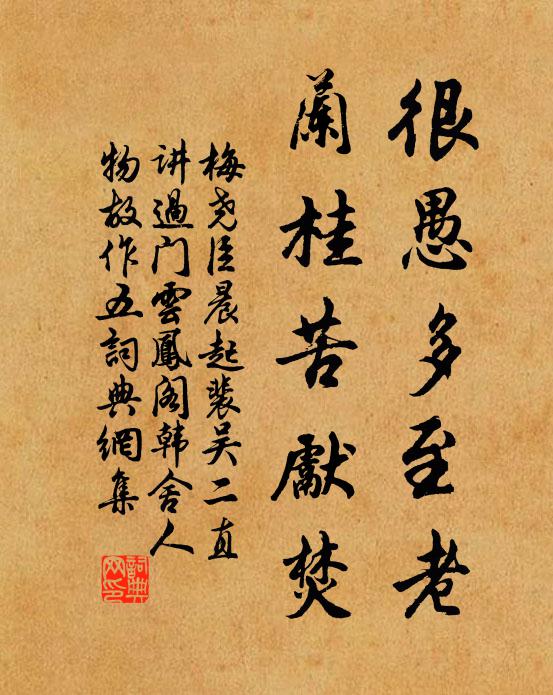 很愚多至老
蘭桂苦獻焚
梅尧臣晨起裴吴二直
讲過门雲鳳阁韩舍人
物故作五詞典網集
詞典
网印